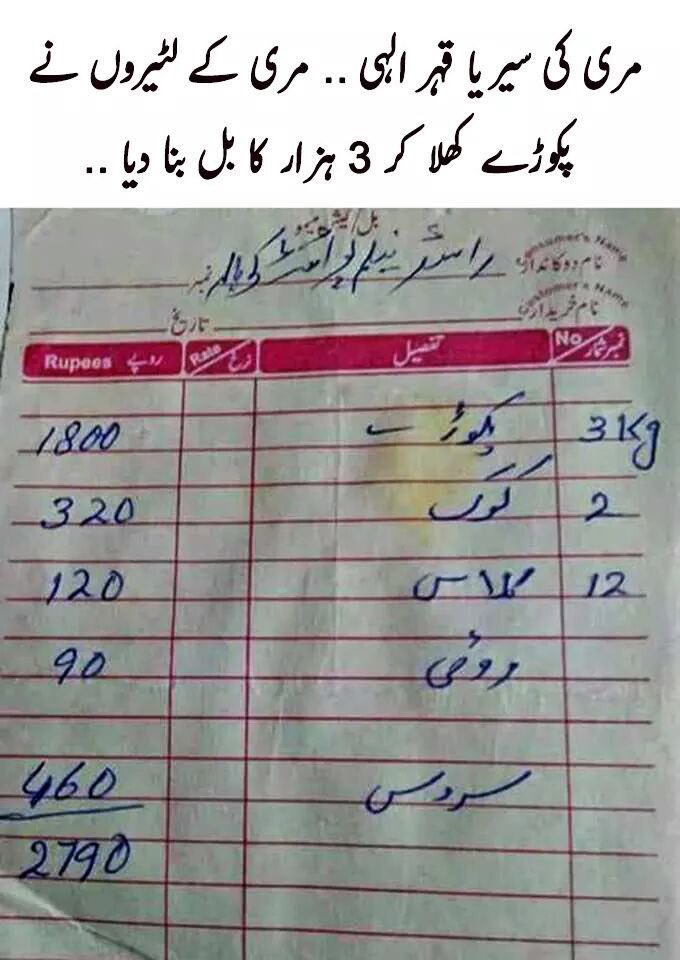 مری کی سیر یا قہر الہی .. مری کے لٹیروں نے
پکوڑے کھلا کر 3 ہزار کا بل بنا دیا ..
بل/کیش میمو
Consumer's Name
نام دوکاندار نمبر
Customer's Name
نام خریدار تاریخ
نمبر شمار No تفصیل نرخ Rate روپے Rupees
3 Kg پکوڑے 1800
2 کوک 320
12 گلاس 120
روٹی 90
سروس 460
2790